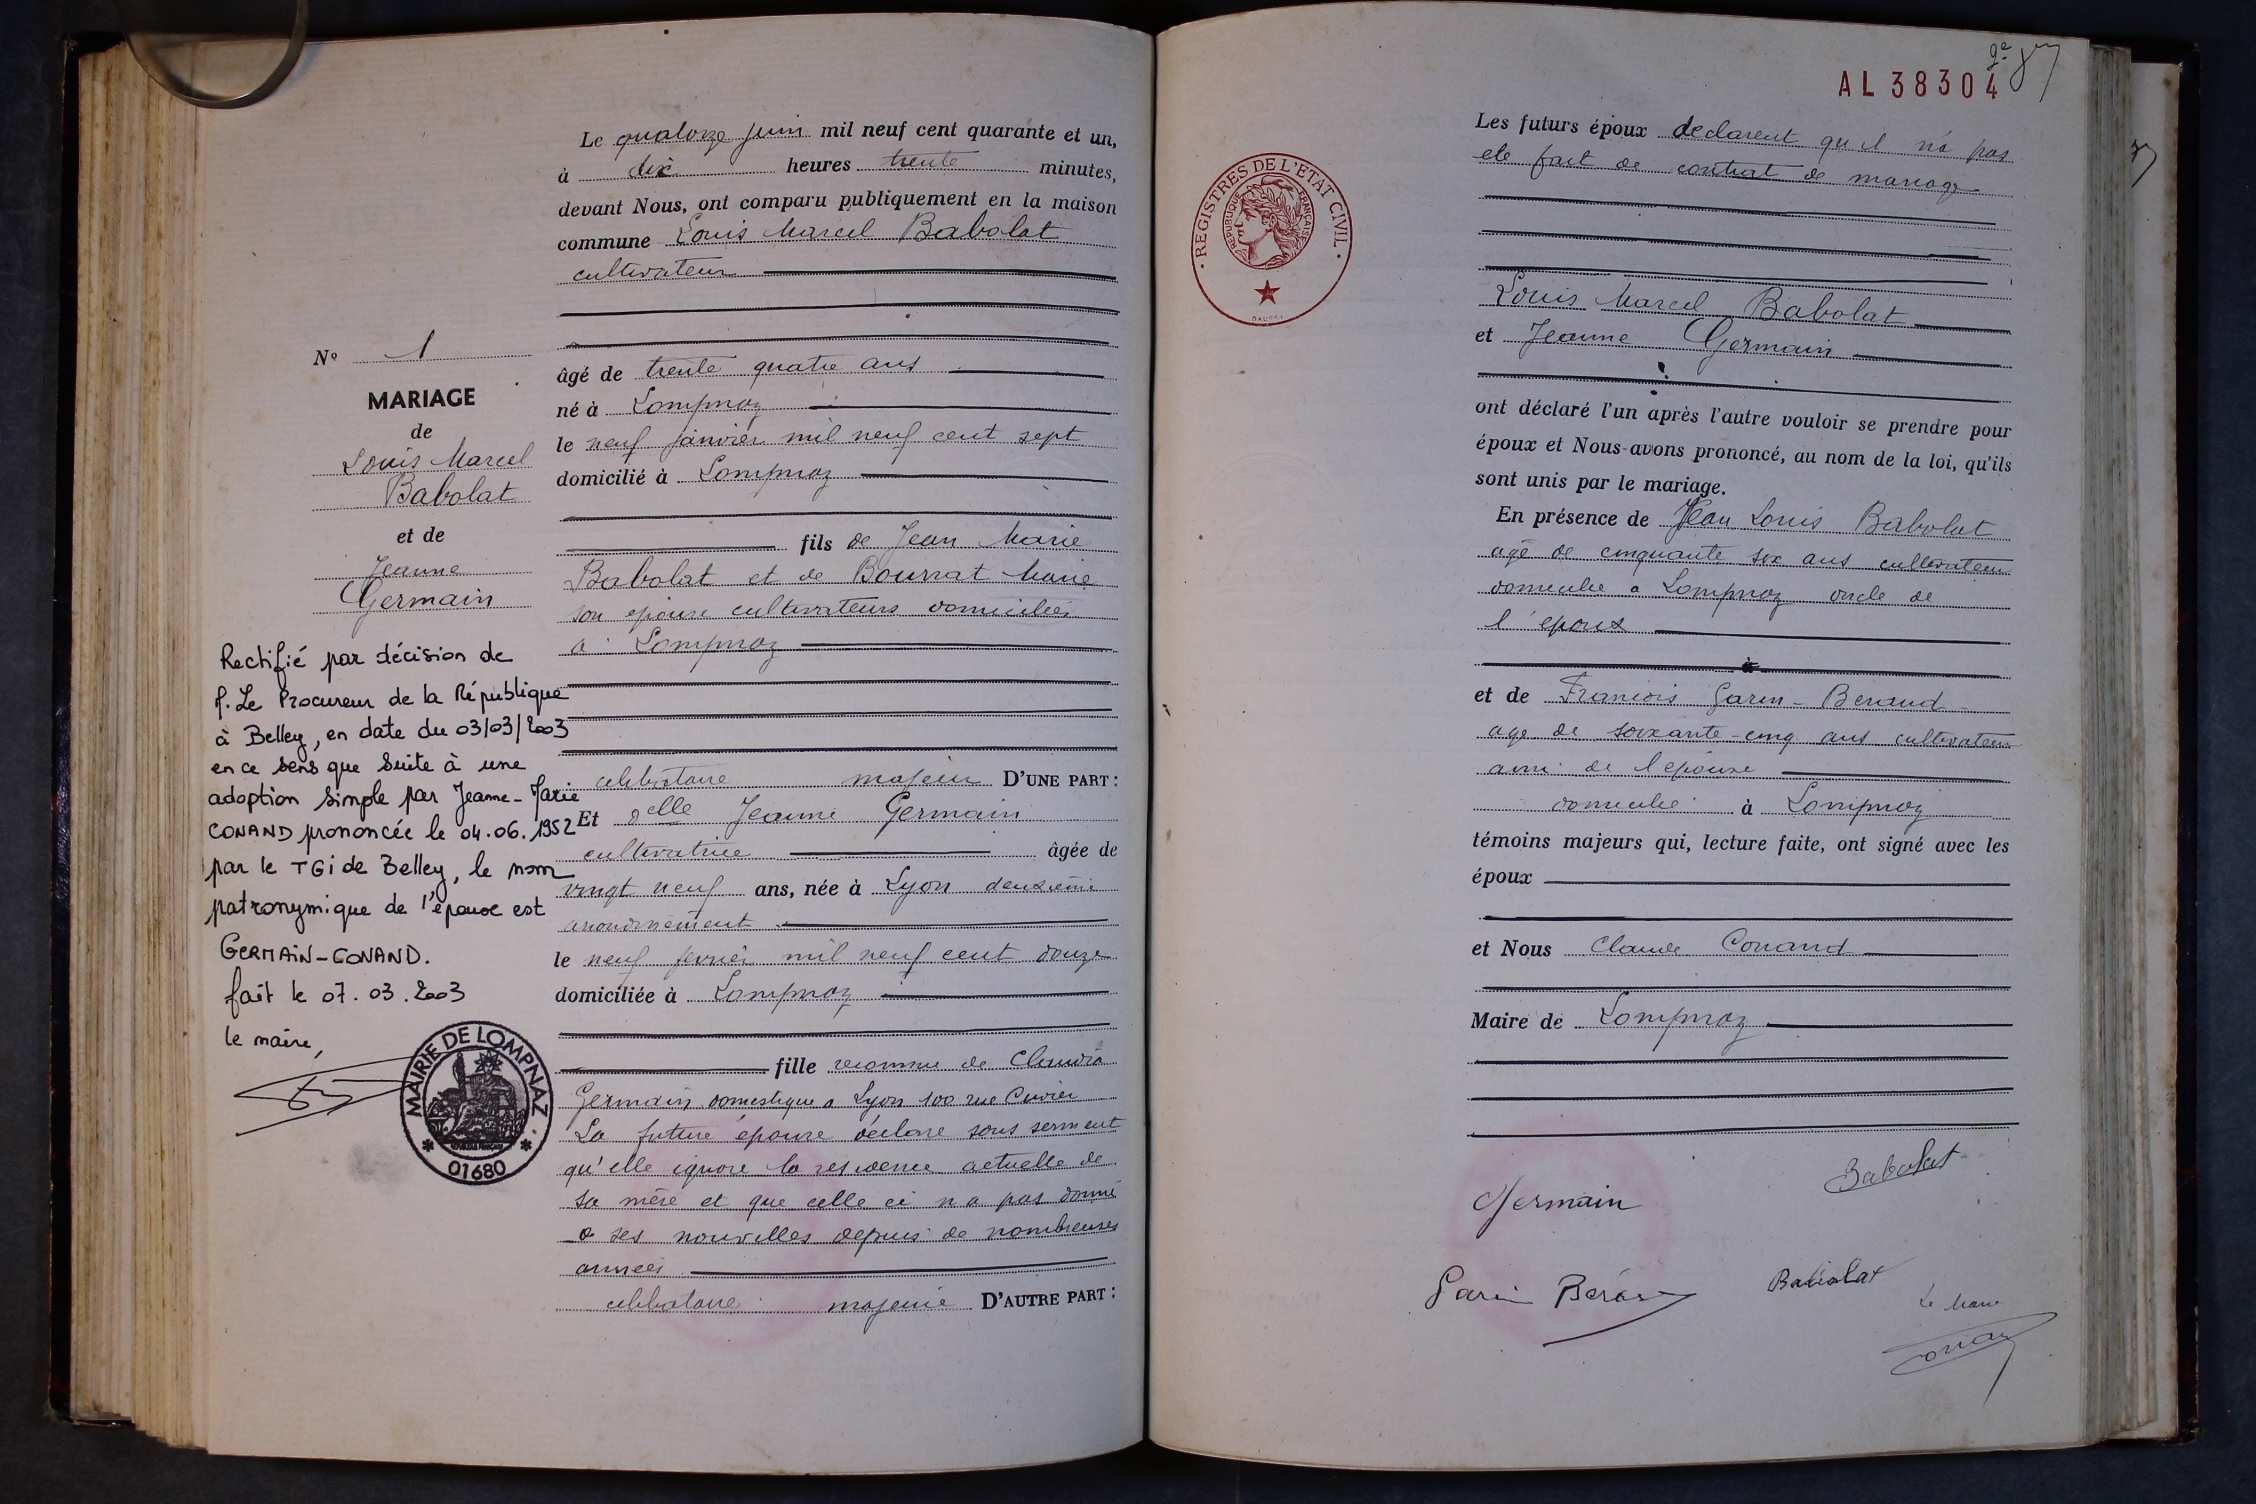 Le quatorze juin mil neuf cent quarante et un,
à dix heures trente minutes,
devant Nous, ont comparu publiquement en la maison
commune Louis Marcel Babolat
cultivateur
âgé de trente quatre ans
né à Lompnaz
le neuf janvier mil neuf cent sept
domicilié à Lompnaz
fils de Jean Marie
Babolat et de Bournat Marie
son epouse cultivateurs domiciliés
a Lompnaz
celibataire majeur D'UNE PART :
Et delle Jeanne Germain
cultivatrice âgée de
vingt neuf ans, née à Lyon deuxième
arrondissement
le neuf fevrier mil neuf cent douze
domiciliée à Lompnaz
fille reconnue de Claudia
Germain domestique a Lyon 100 rue Cuvier
La future épouse déclare sous serment
qu'elle ignore la residence actuelle de
sa mère et que celle ci n a pas donné
de ses nouvelles depuis de nombreuses
années
celibataire majeure D'AUTRE PART :
N° 1
MARIAGE
de
Louis Marcel
Babolat
et de
Jeanne
Germain
Rectifié par décision de
M. Le Procureur de la République
à Belley, en date du 03/03/2003
en ce sens que suite à une
adoption simple par Jeanne-Marie
CONAND prononcée le 04.06.1952
par le TGI de Belley, le nom
patronymique de l'épouse est
GERMAIN-CONAND.
fait le 07.03.2003
le maire,
MAIRIE DE LOMPNAZ
01680
AL 38304
REGISTRES DE L'ETAT CIVIL
REPUBLIQUE FRANÇAISE
Les futurs époux declarent qu il n'a pas
ete fait de contrat de mariage
Louis Marcel Babolat
et Jeanne Germain
ont déclaré l'un après l'autre vouloir se prendre pour
époux et Nous avons prononcé, au nom de la loi, qu'ils
sont unis par le mariage.
En présence de Jean Louis Babolat
agé de cinquante six ans cultivateur
domicilie a Lompnaz oncle de
l'epoux
et de Francois Garin-Beraud
age de soixante-cinq ans cultivateur
ami de l epouse
domicilie à Lompnaz
témoins majeurs qui, lecture faite, ont signé avec les
époux
et Nous Claude Conand
Maire de Lompnaz
Babolat
Germain
Babolat
Garin Béraud
Le Maire
Conand